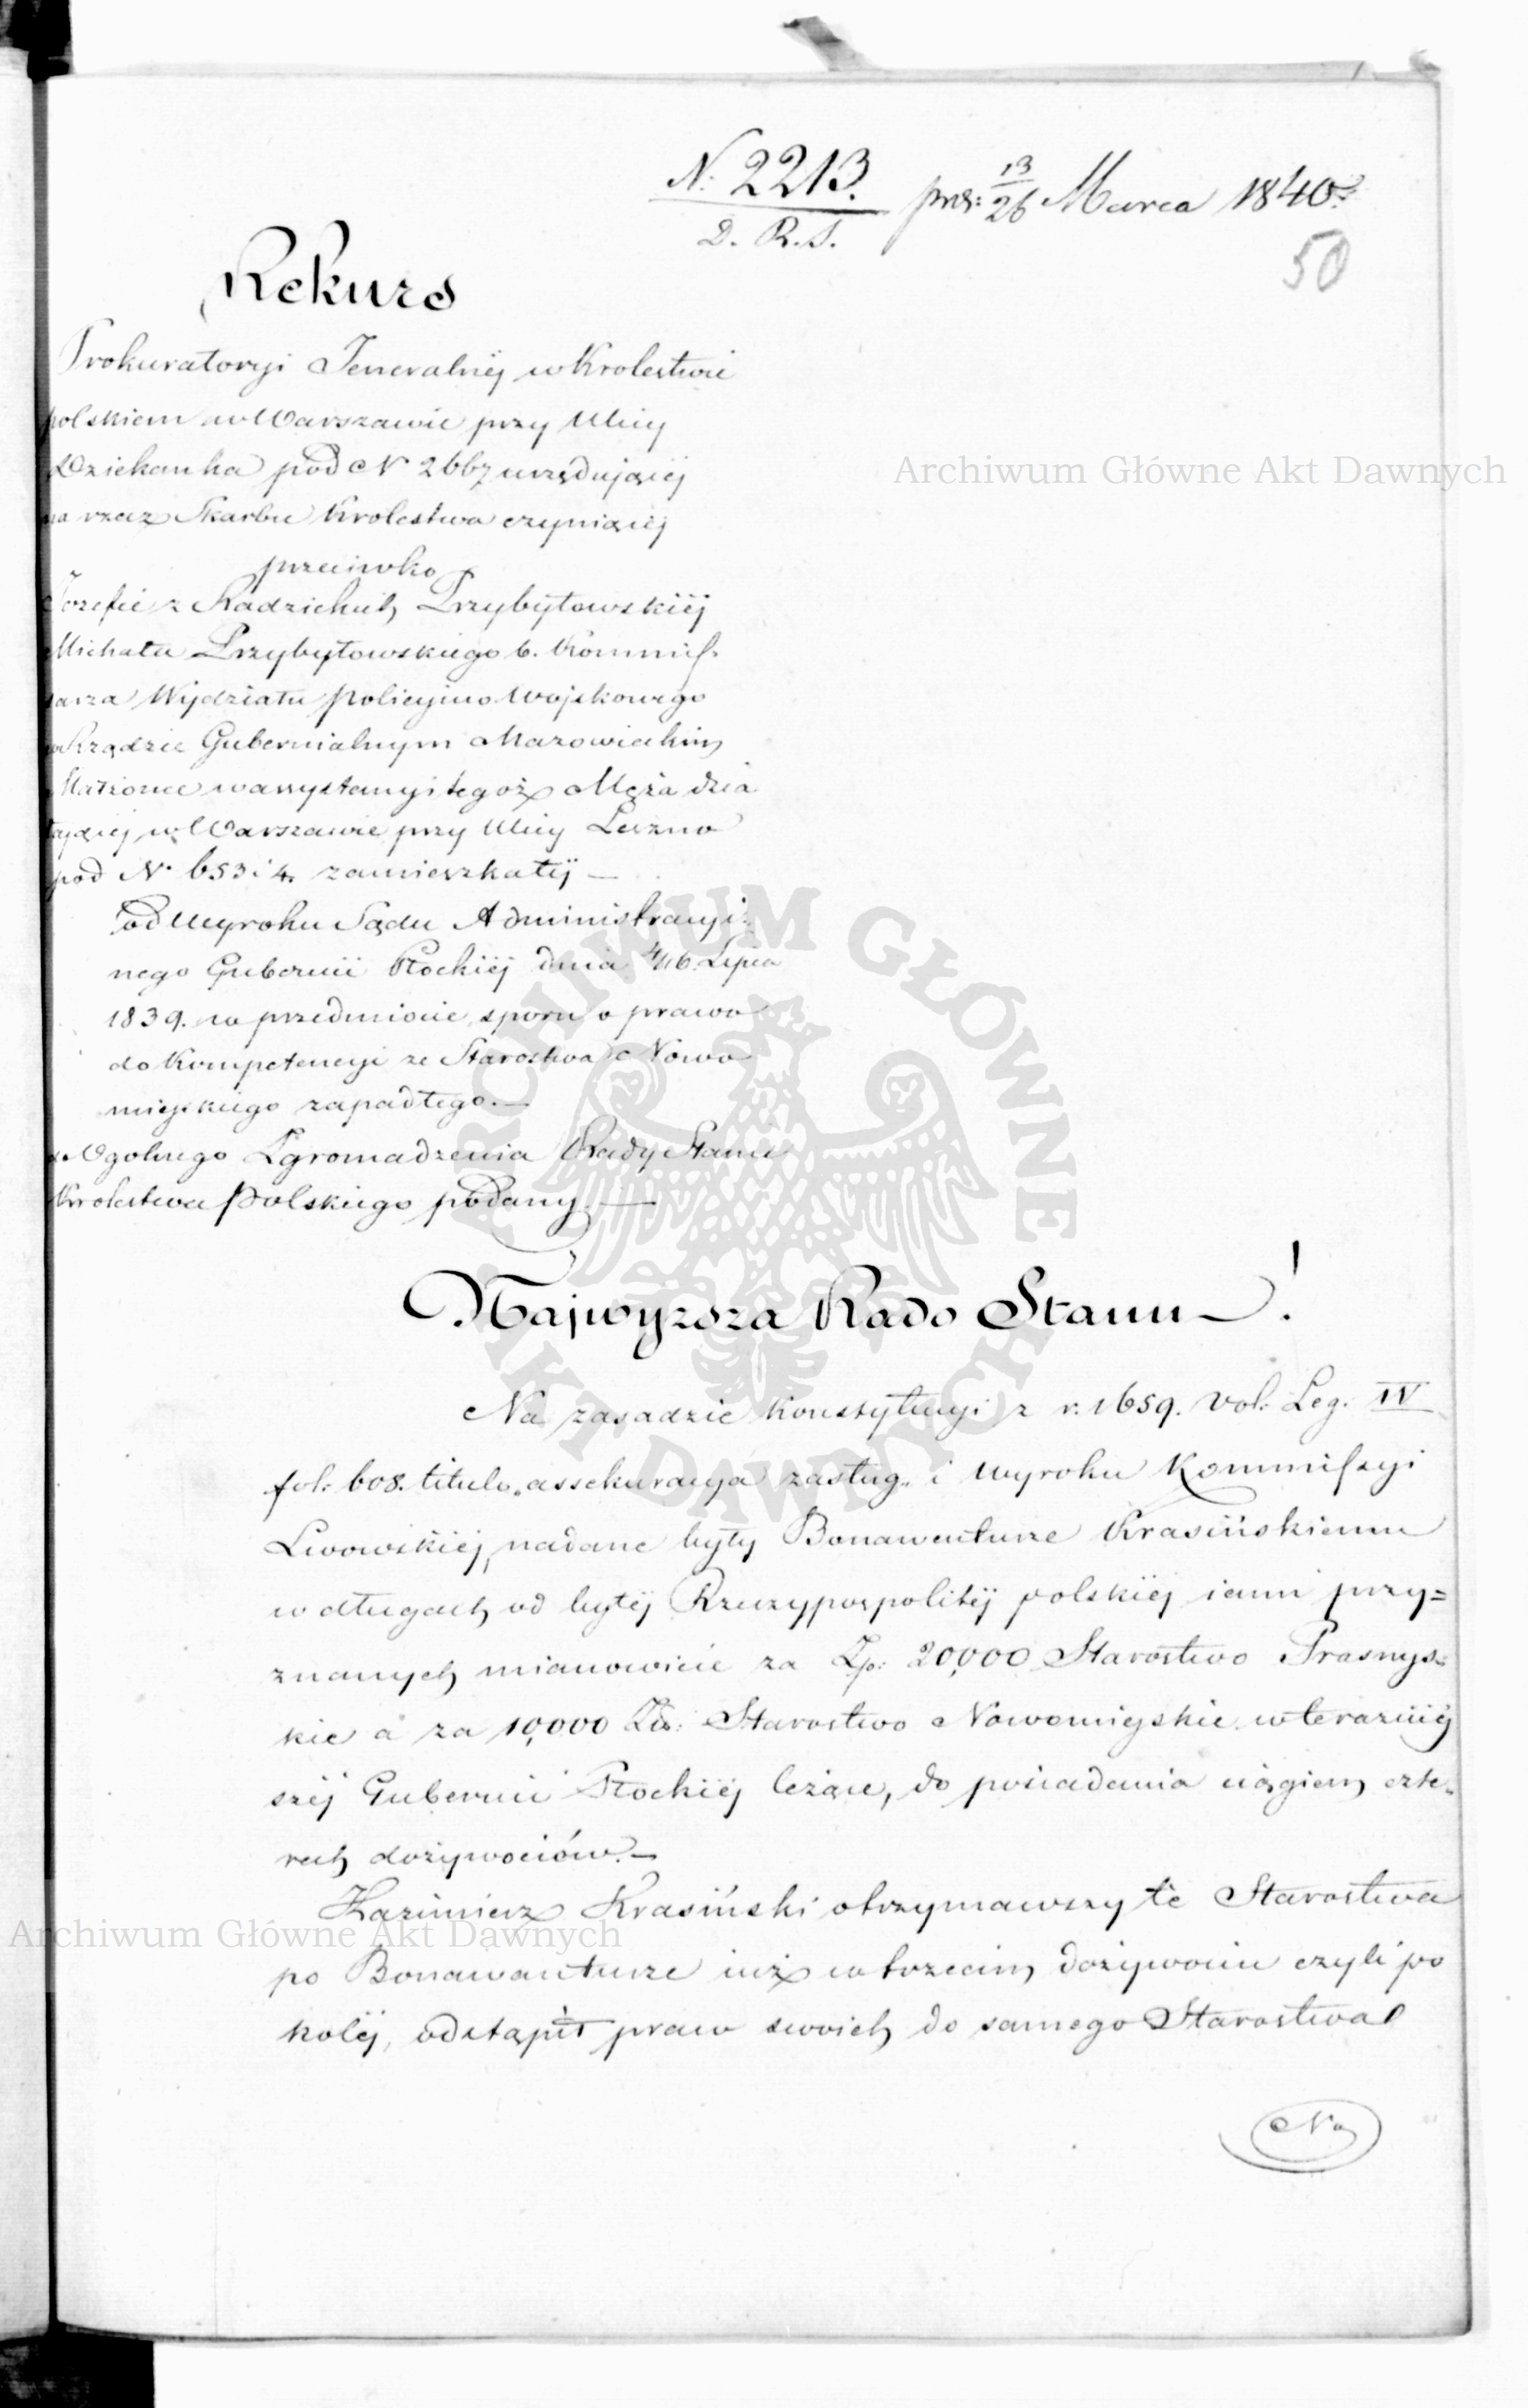 N. 2213. prs: 13/26 Marca 1840.
D. R. S.
50
Rekurs
Prokuratoryi Jeneralnéj w Krolestwie
polskiem w Warszawie przy Ulicy
Dziekanka pod N 2667 urzędującéj
na rzecz Skarbu Krolestwa czyniącéj
przeciwko
Jozefie z Radzickich Przybyłowskiéj
Michała Przybyłowskiego b. Kommis-
sarza Wydziału Policyjno Wojskowego
w Rządzie Gubernialnym Mazowieckim
Małżonce w assystencyi tegoż Męża dzia
łającéj w Warszawie przy Ulicy Leszno
pod N. 653 i 4. zamieszkałéj —
od Wyroku Sądu Administracyi-
nego Gubernii Płockiéj dnia 4/16. Lipca
1839. w przedmiocie sporu o prawo
do Kompetencyi ze Starostwa Nowo
mieyskiego zapadłego. —
do Ogolnego Zgromadzenia Rady Stanu
Krolestwa Polskiego podany. —
Najwyzsza Rado Stanu!
Na zasadzie Konstytucyi z r. 1659. Vol. Leg. IV
fol. 608. titulo „assekuracya zasług„ i Wyroku Kommissyi
Lwowskiéj, nadane były Bonawenturze Krasińskiemu
w długach od byłéj Rzeczypospolitéj polskiéj iemu przy=
znanych mianowicie za Zp: 20,000 Starostwo Prasnys=
kie a za 10,000 Zło: Starostwo Nowomieyskie w terazniej
széj Gubernii Płockiéj leżące, do posiadania ciągiem czte=
rech dożywociów. —
Kazimierz Krasiński otrzymawszy te Starostwa
po Bonawanturze iuż w trzecim dożywociu czyli po
koléj, odstąpił praw swoich do samego Starostwa
No
Archiwum Główne Akt Dawnych
Archiwum Główne Akt Dawnych
ARCHIWUM GŁÓWNE
AKT DAWNYCH